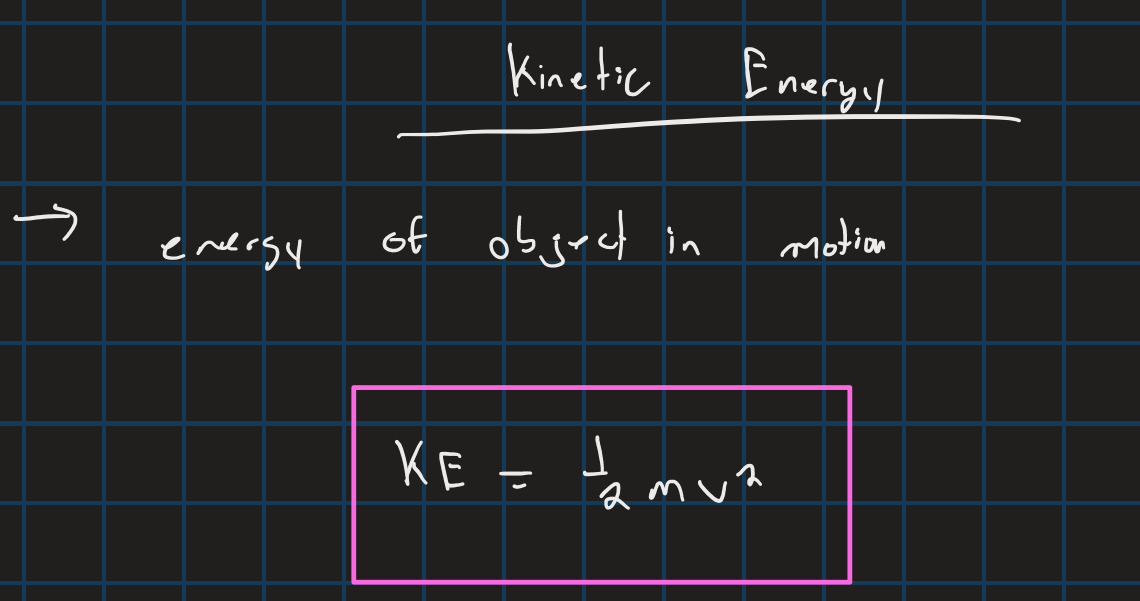 Kinetic Energy
→ energy of object in motion
KE = 1/2 mv²